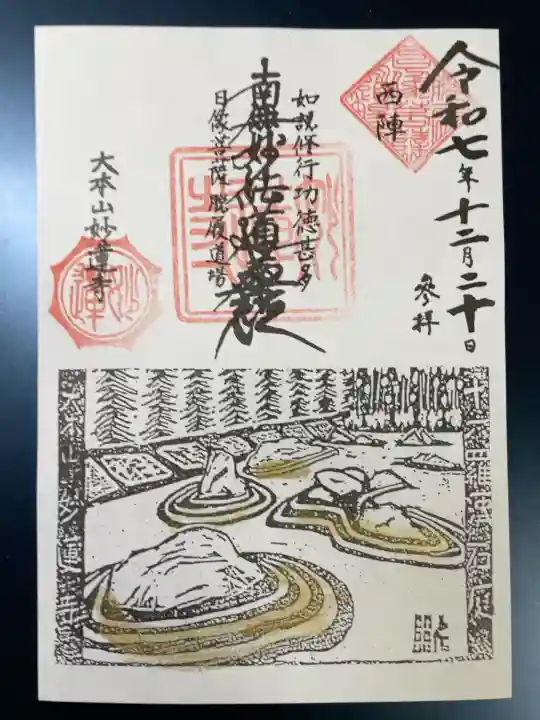 令和七年十二月二十日
参拝
西陣
如説修行功徳甚多
南無妙法蓮華経
日像菩薩聖蹟道場
大本山妙蓮寺
妙蓮
十六羅漢石庭
大本山妙蓮寺